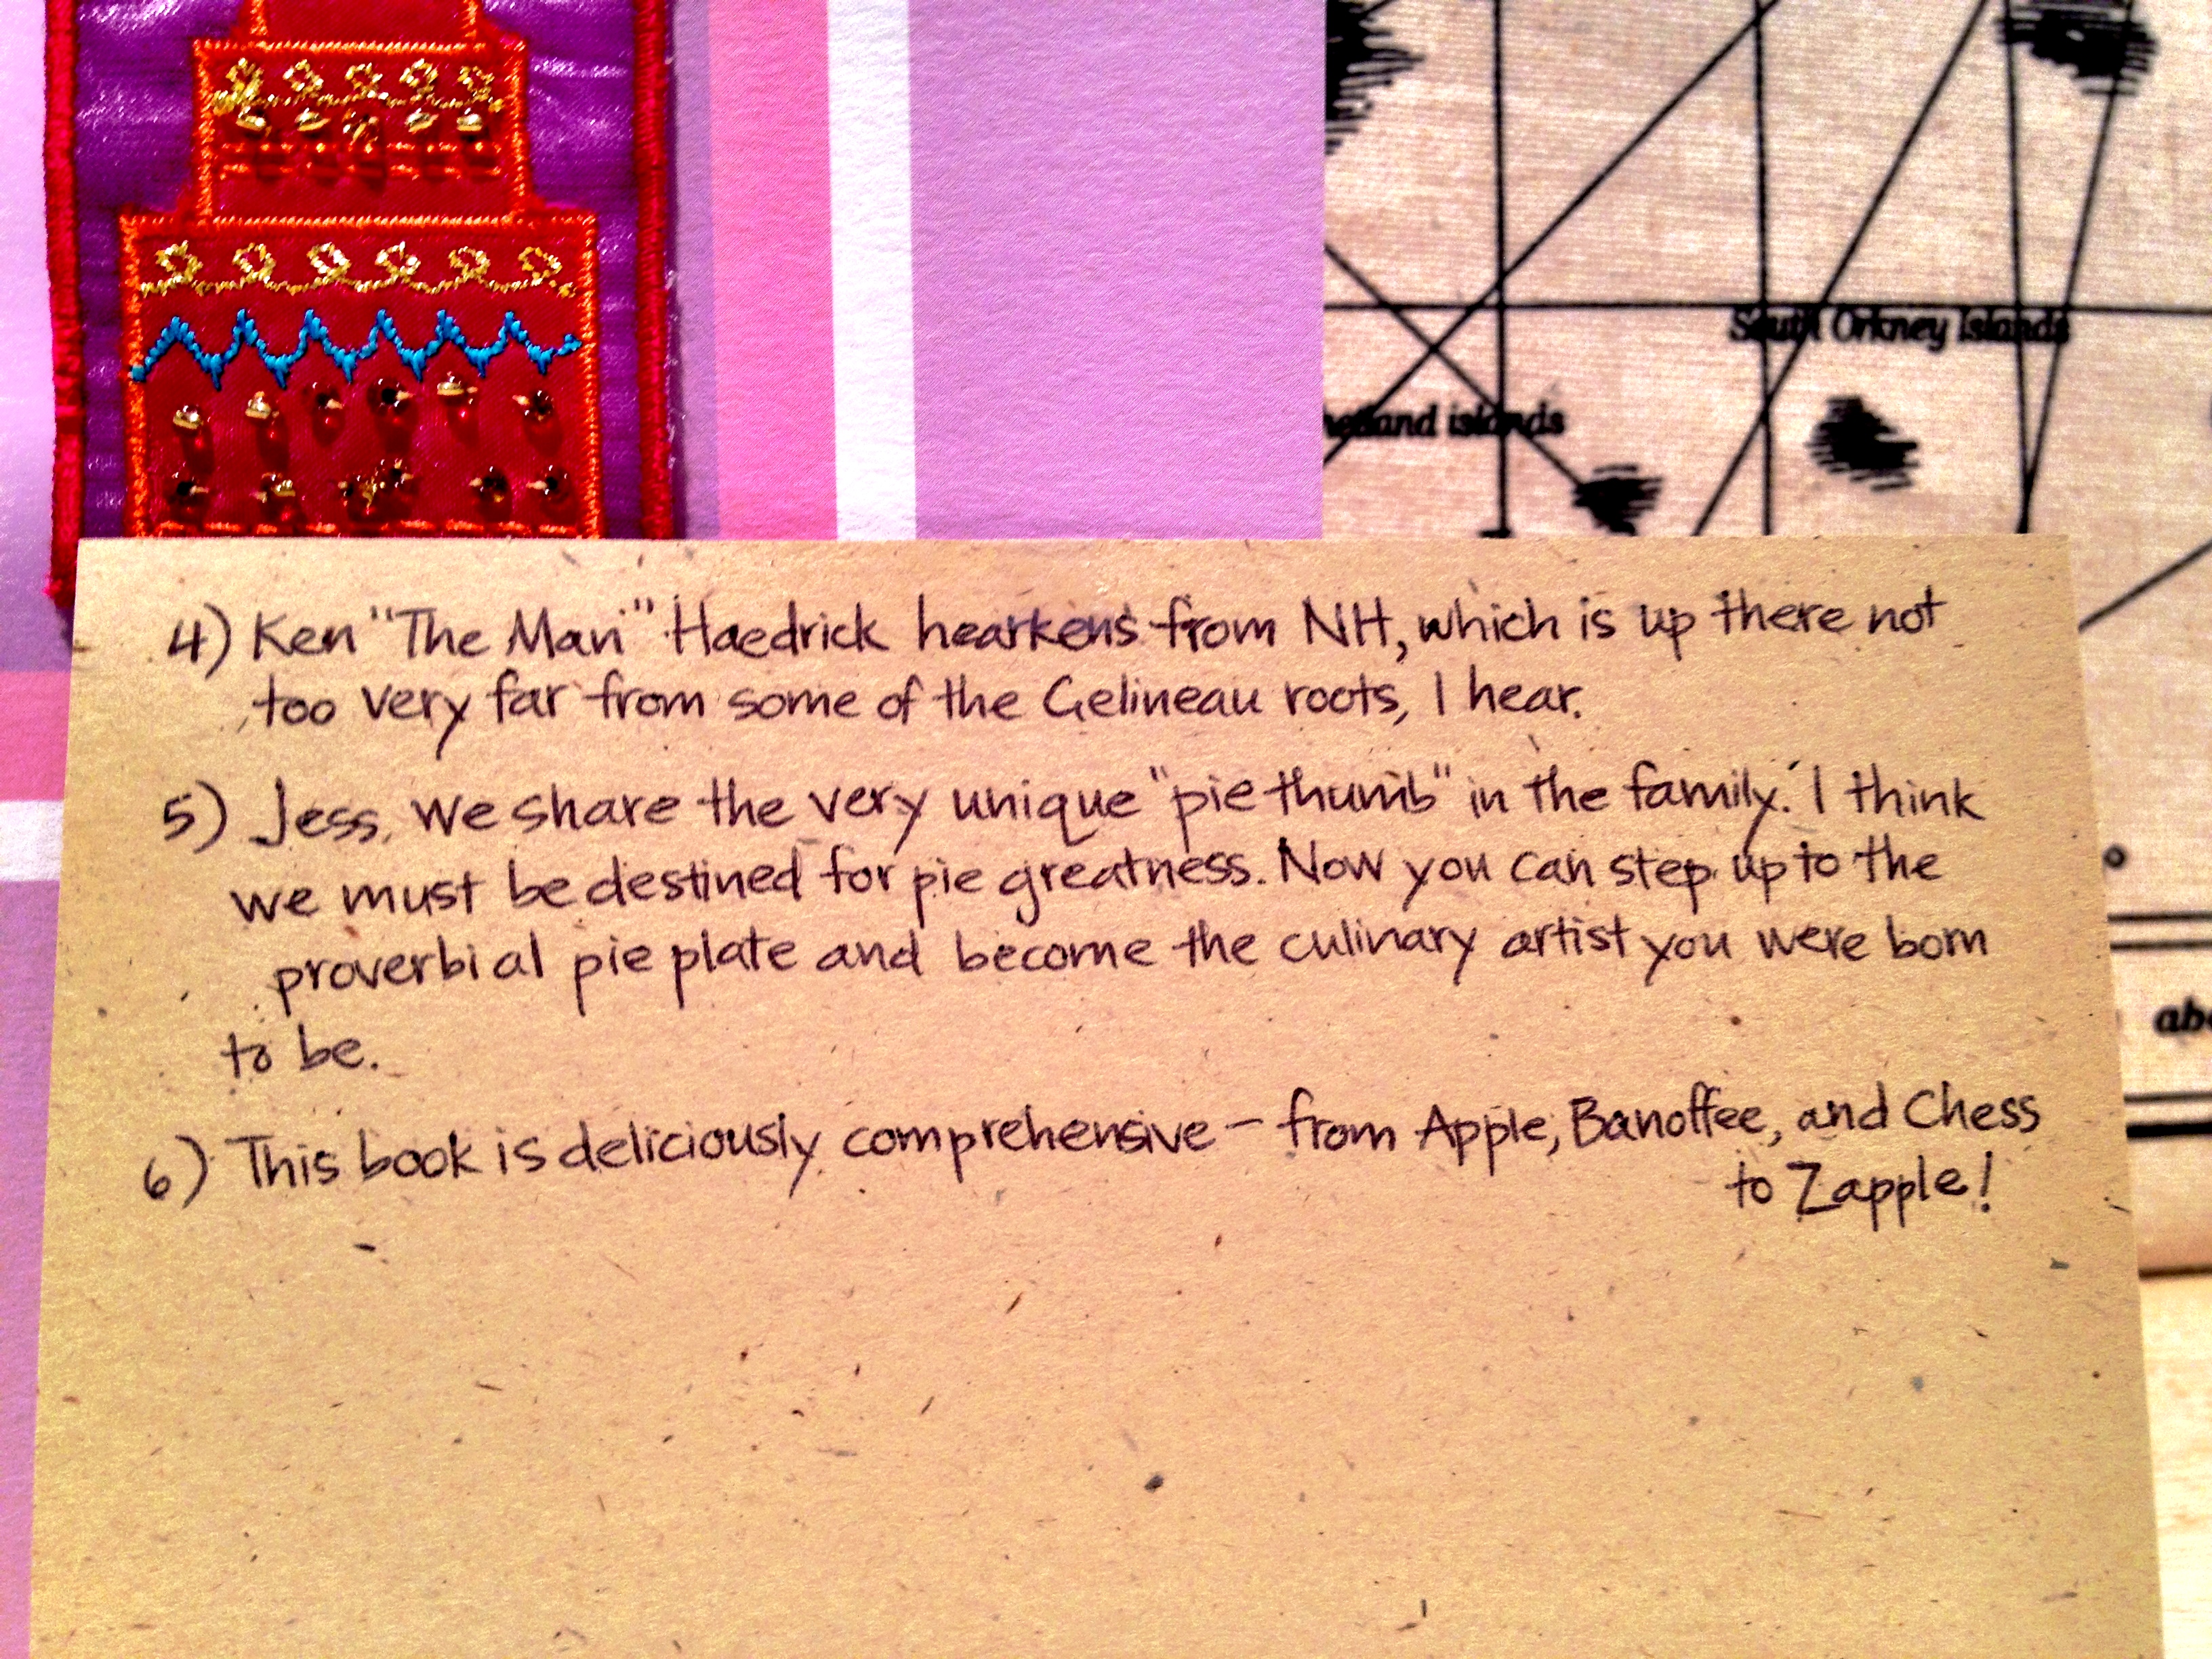 South Orkney Islands
islands
4) Ken "The Man" Haedrick hearkens from NH, which is up there not
too very far from some of the Gelineau roots, I hear.
5) Jess, we share the very unique "pie thumb" in the family. I think
we must be destined for pie greatness. Now you can step up to the
proverbial pie plate and become the culinary artist you were born
to be.
6) This book is deliciously comprehensive – from Apple, Banoffee, and Chess
to Zapple!